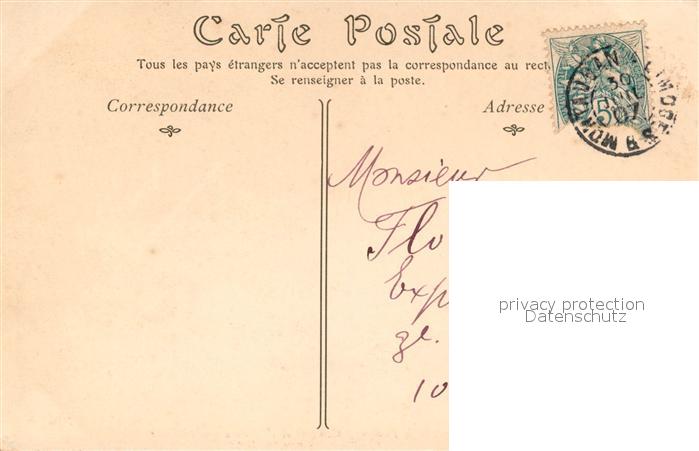 Carte Postale
Tous les pays étrangers n'acceptent pas la correspondance au rect
Se renseigner à la poste.
Correspondance
Adresse
Monsieur
Flo
Exp
10
privacy protection
Datenschutz